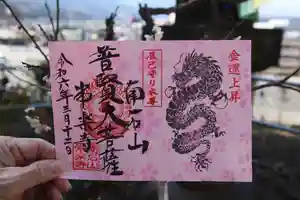 金運上昇
辰巳守り本尊
南石山
普賢大菩薩
令和六年三月十二日